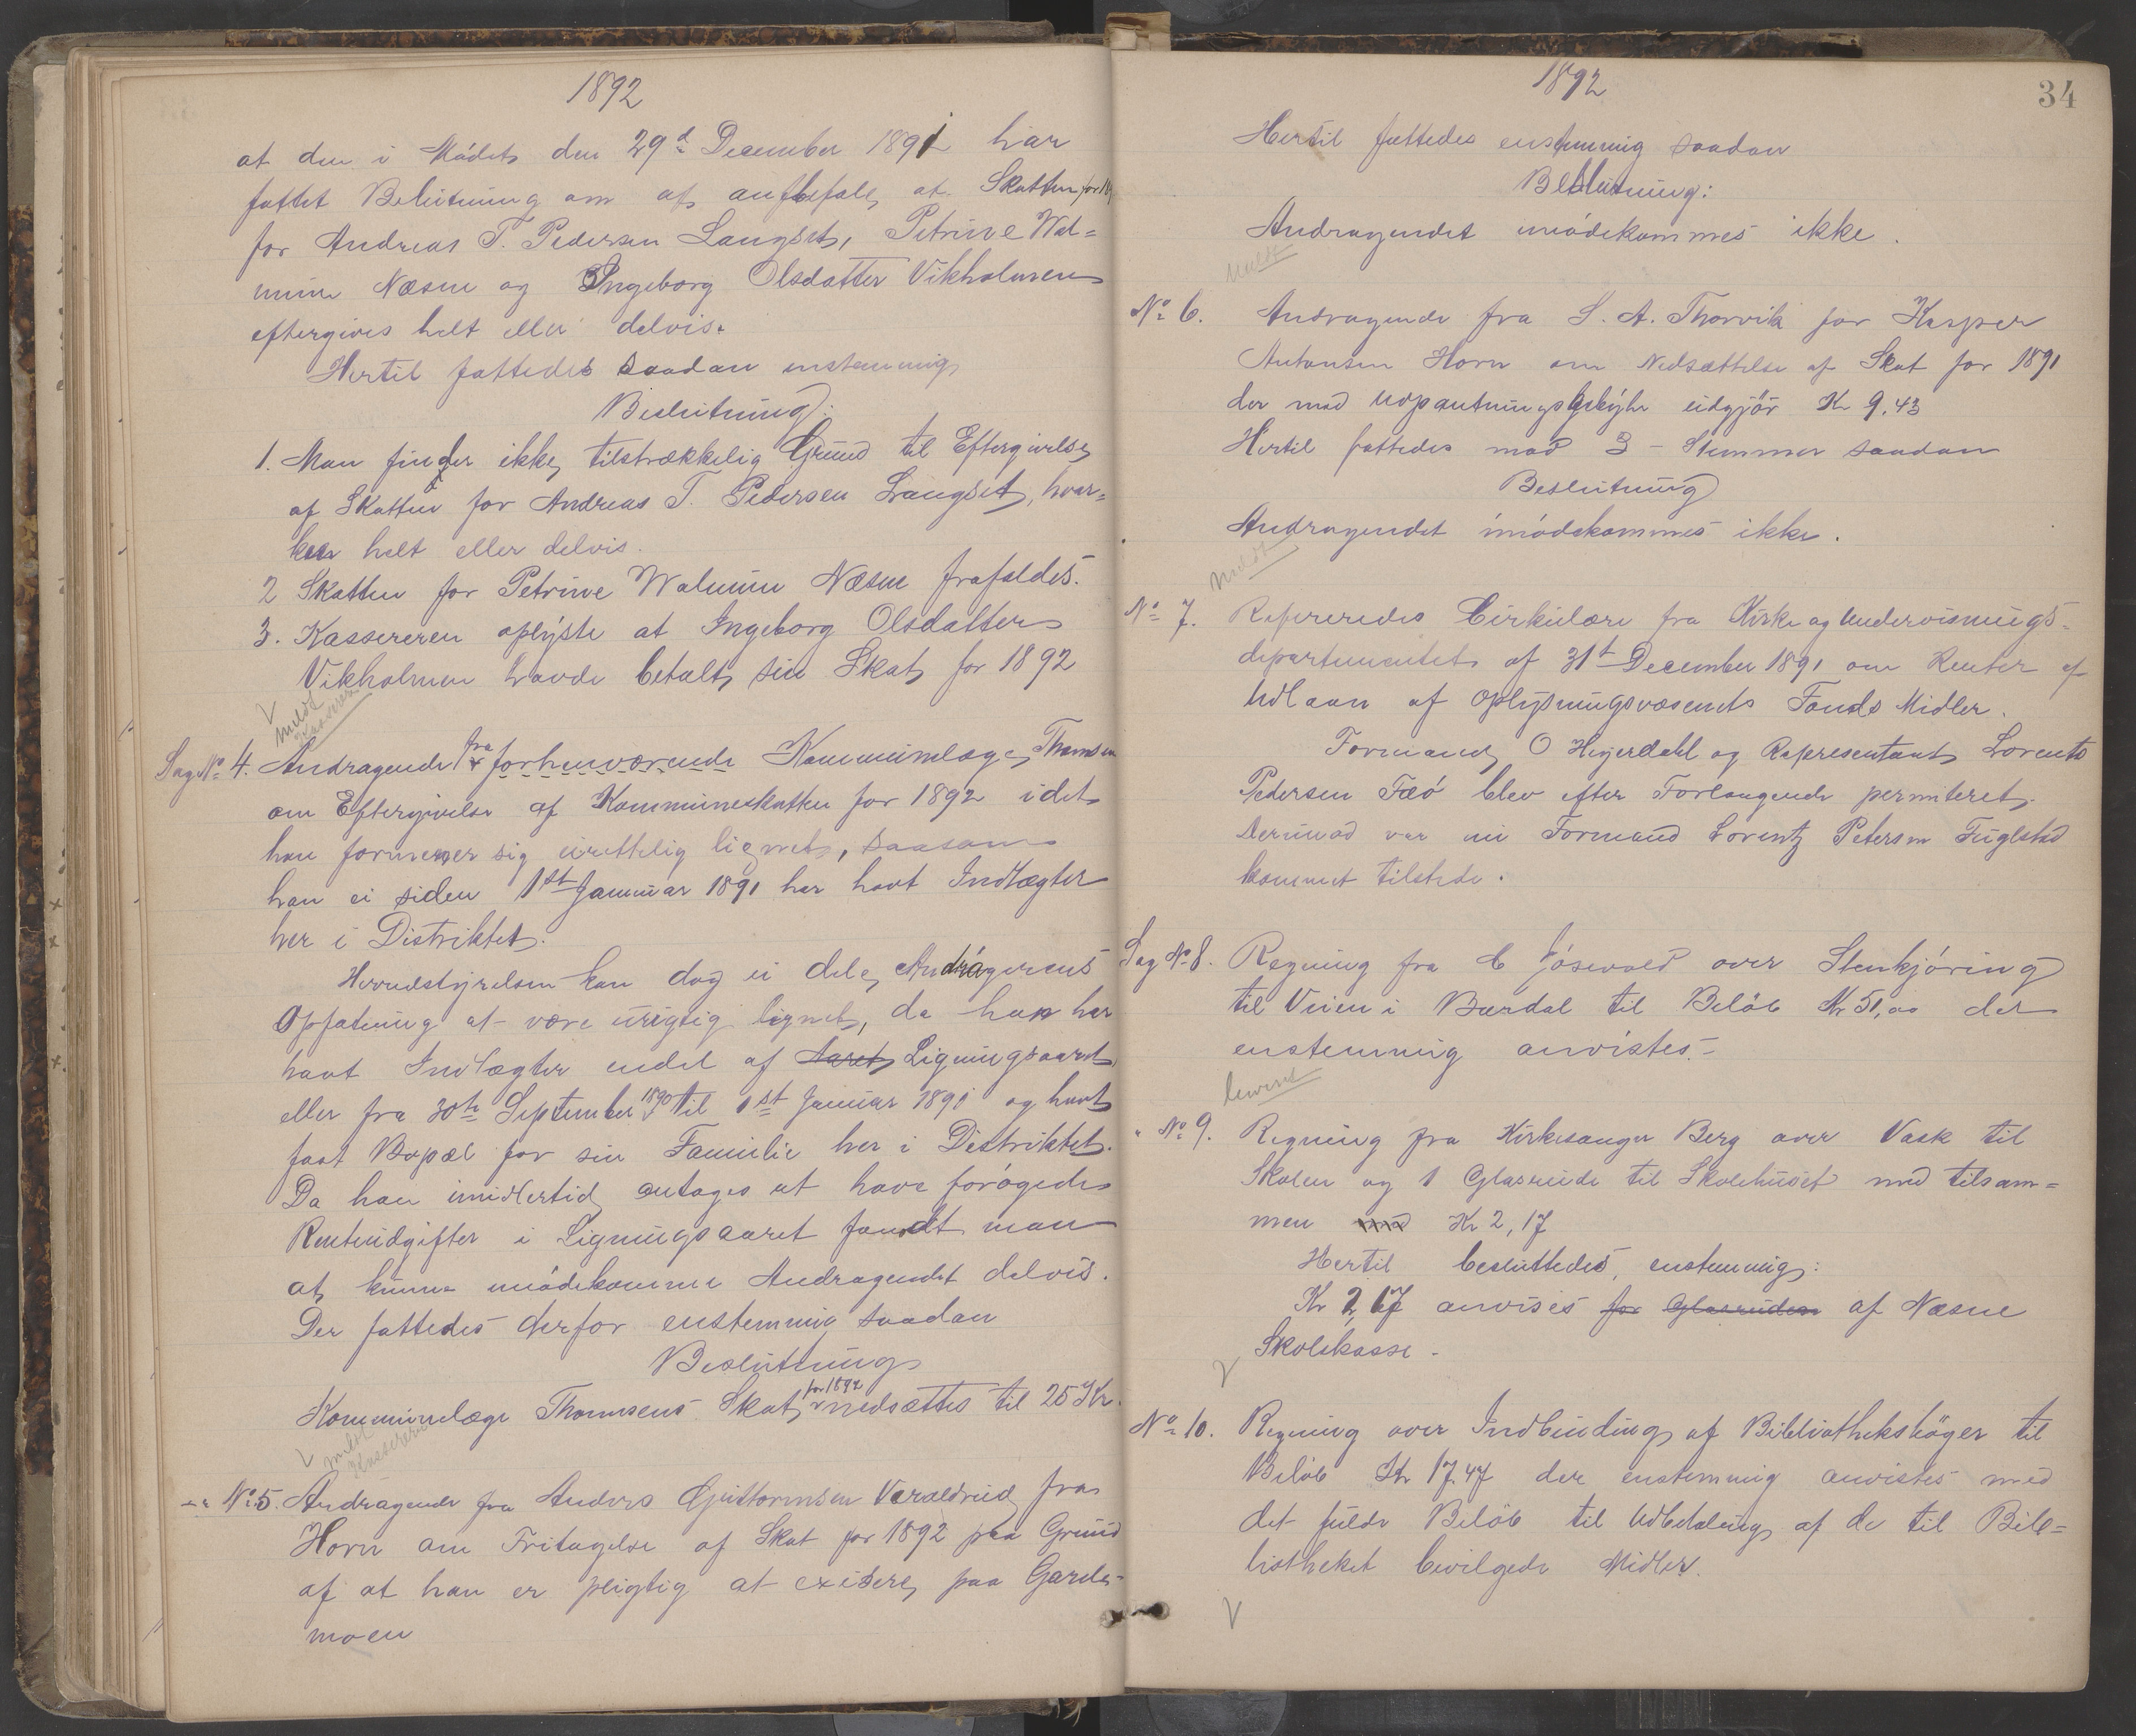 1892
at den i Mødet den 29d December 1891 har
fattet Beslutning om at anbefale, at Skatten for 18
for Andreas T. Pedersen Langset, Petrine Wal=
mine Næsne og Ingeborg Olsdatter Vikholmen
eftergives helt eller delvis.
Hertil fattedes saadan enstemmig
Beslutning:
1. Man finder ikke tilstrækkelig Grund til Eftergivelse
af Skatten for Andreas T. Pedersen Langset, hver=
ken helt eller delvis.
2 Skatten for Petrine Walmine Næsne frafaldes.
3. Kassereren oplyste at Ingeborg Olsdatter
Vikholmen havde betalt sin Skat for 1892
meldt
Kassereren
Sag No 4. Andragende fra forhenværende Kommunelæge Thomsen
om Eftergivelse af Kommuneskatten for 1892 idet
han formener sig urettelig lignet, saasom
han ei siden 1st Januar 1891 har havt Indtægter
her i Distriktet.
Herredstyrelsen kan dog ei dele Andragerens
Opfatning at være urigtig lignet, da han har
havt Indtægter endel af Aaret Ligningsaaret
eller fra 30te September 1890 til 1st Januar 1891 og havt
fast Bopæl for sin Familie her i Distriktet.
Da han imidlertid antages at have forøgede
Renteudgifter i Ligningsaaret fandt man
at kunne imødekomme Andragendet delvis.
Der fattedes derfor enstemmig saadan
Beslutning
Kommunelæge Thomsens Skat for 1892 nedsættes til 25 Kr.
meldt
Kassereren
-"- No 5. Andragende fra Anders Guttormsen Veraldrud fra
Horn om Fritagelse af Skat for 1892 paa Grund
af at han er pligtig at exisere paa Garde-
moen
1892
34
Hertil fattedes enstemmig saadan
Beslutning:
Andragendet imødekommes ikke.
meldt
No 6. Andragende fra S. A. Thorvik for Kasper
Antonsen Horn om Nedsættelse af Skat for 1891
der med Uopantningsgebyhr udgjør Kr 9.43
Hertil fattedes mod 3 - Stemmer saadan
Beslutning
Andragendet imødekommes ikke.
meldt
No 7. Refereredes Cirkulære fra Kirke og Undervisnings=
departementet af 31t December 1891 om Renter af
Udlaan af Oplysningsvæsenets Fonds Midler.
Formand O Heyerdahl og Representant Lorents
Pedersen Fæø blev efter Forlangende permiteret.
Derimod var nu Formand Lorentz Petersen Fuglstad
kommet tilstede.
Sag No 8. Regning fra C Jøsevold over Stenkjøring
til Veien i Bardal til Beløb Kr 51,00 der
enstemmig anvistes.-
leveret
" No 9. Regning fra Kirkesanger Berg over Vask til
Skolen og 1 Glasrude til Skolehuset med tilsam=
men med Kr 2,17
Hertil besluttedes enstemmig:
Kr 2,17 anvises for Glasruden af Næsne
Skolekasse -
No 10. Regning over Indbinding af Bibliothekshøger til
Beløb Kr 17.47 der enstemmig anvistes med
det fulde Beløb til Udbetaling af de til Bib=
liotheket bevilgede Midler.